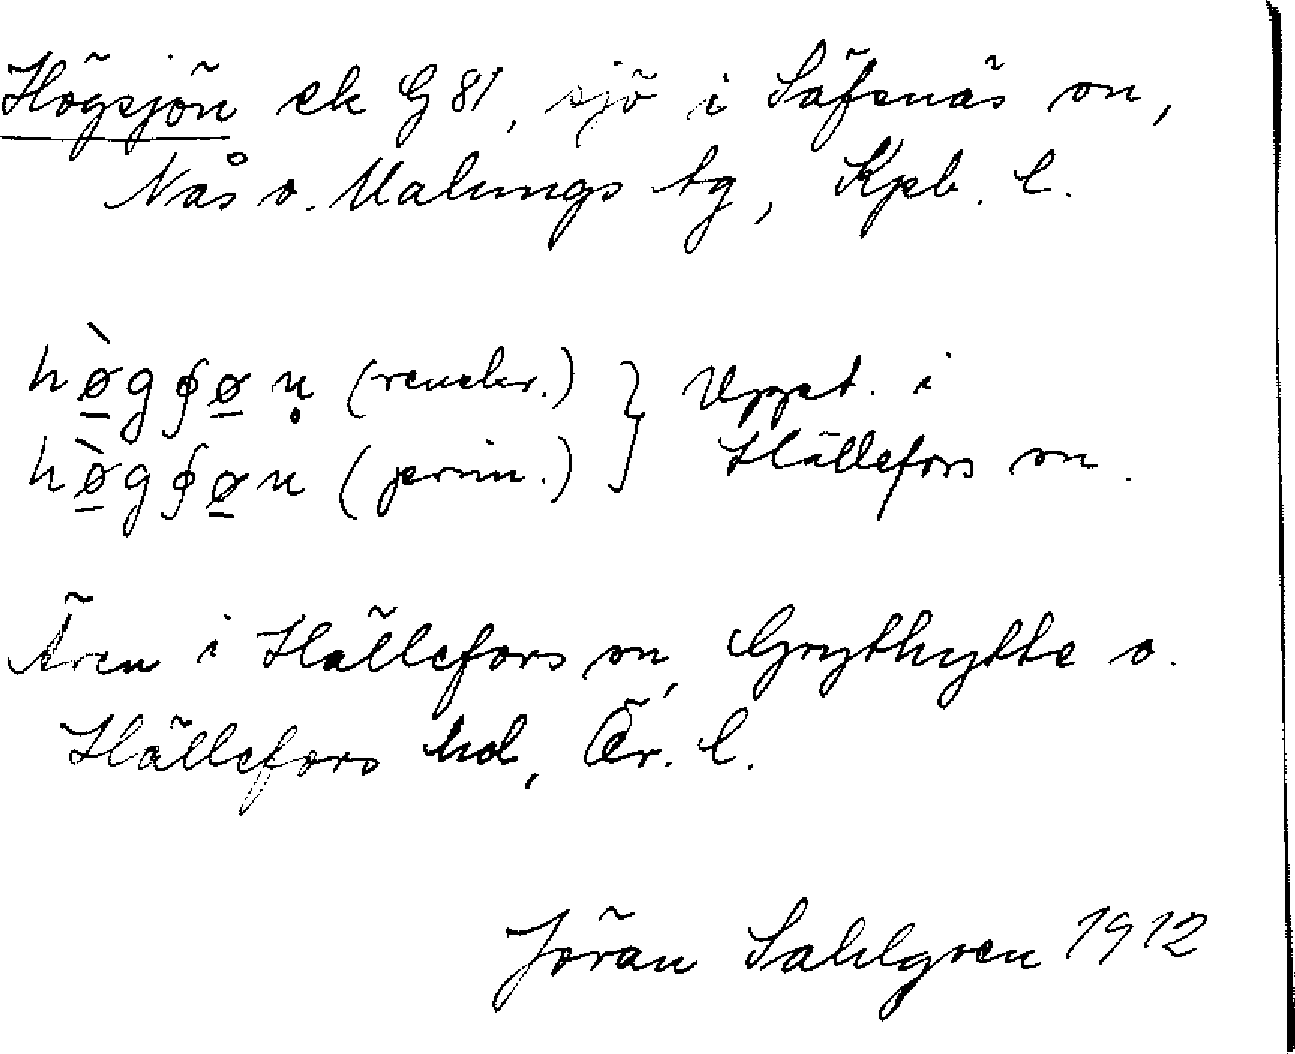 Högsjön ek G 81, sjö i Säfsnäs sn,
Nås o. Malungs tg, Kpb. l.
hø̲̀gʃø̲ṇ (renskr.) } Uppt. i
hø̲̀gʃø̲n (prim.) } Hällefors sn.
Ären i Hällefors sn, Grythytte o.
Hällefors hd, Ör. l.
Jöran Sahlgren 1912